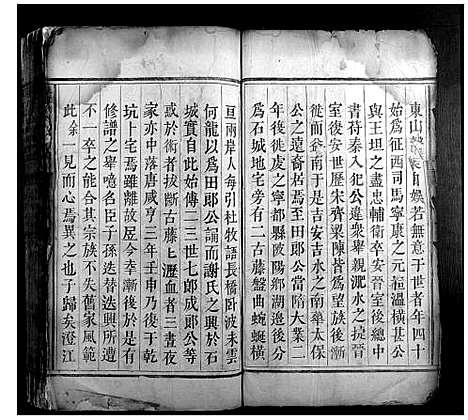 東山攜妓自娛若無意于世者年四十
始爲征西司馬寧康之元桓溫橫甚公
與王坦之盡忠輔衛卒安晉室後總中
書符秦入犯公違衆舉親淝水之捷晉
室復安世歷宋齊梁陳皆爲望族後漸
徙而分于是吉安吉水之南華太保
公之遠裔居焉至田郎公當隋大業二
年後徙虔之寧都縣陂陽鄉湖演初名
爲石城地宅旁有二古藤盤曲蜿蜒橫
亘兩岸人每引杜牧語長橋卧波未雲
何龍以爲田郎公誦而謝氏之興於石
城實自此始傳二三世七郎成郎公等
或於術者拔斷古藤上瀝血者三晝夜
家亦中落唐咸亨三年壬申乃復于乾
坑卜宅焉雖離故居今幸漸後於是有
修譜之舉噫名臣子孫迭替法興所遭
不一卒之能合其宗族不失舊家風範
此余一見而心焉異之也子歸矣澄江